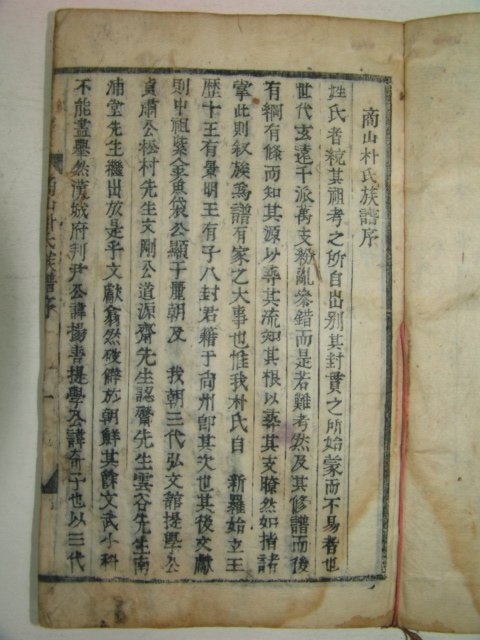 商山朴氏族譜序
姓氏者統其祖考之所自出別其封貫之所始蒙而不易者也
世代玄遠千派萬支紛亂參錯而是若難考然及其修譜而後
有綱有條而知其源以尋其流知其根以尋其支瞭然如指諸
掌此則敘族爲譜有家之大事也惟我朴氏自 新羅始立王
歷十王有景明王有子八封君籍于尙州卽其次也其後文獻
則中祖紫金魚袋公顯于麗朝及 我朝三代弘文館提學公
貞肅公松村先生文剛公道源齋先生認齋先生雲谷先生南
浦堂先生繼出於是乎文獻翕然後僻於朝鮮其餘文武小科
不能盡擧然漢城府判尹公諱揚善提學公諱 也以三代
商山朴氏族譜序 一